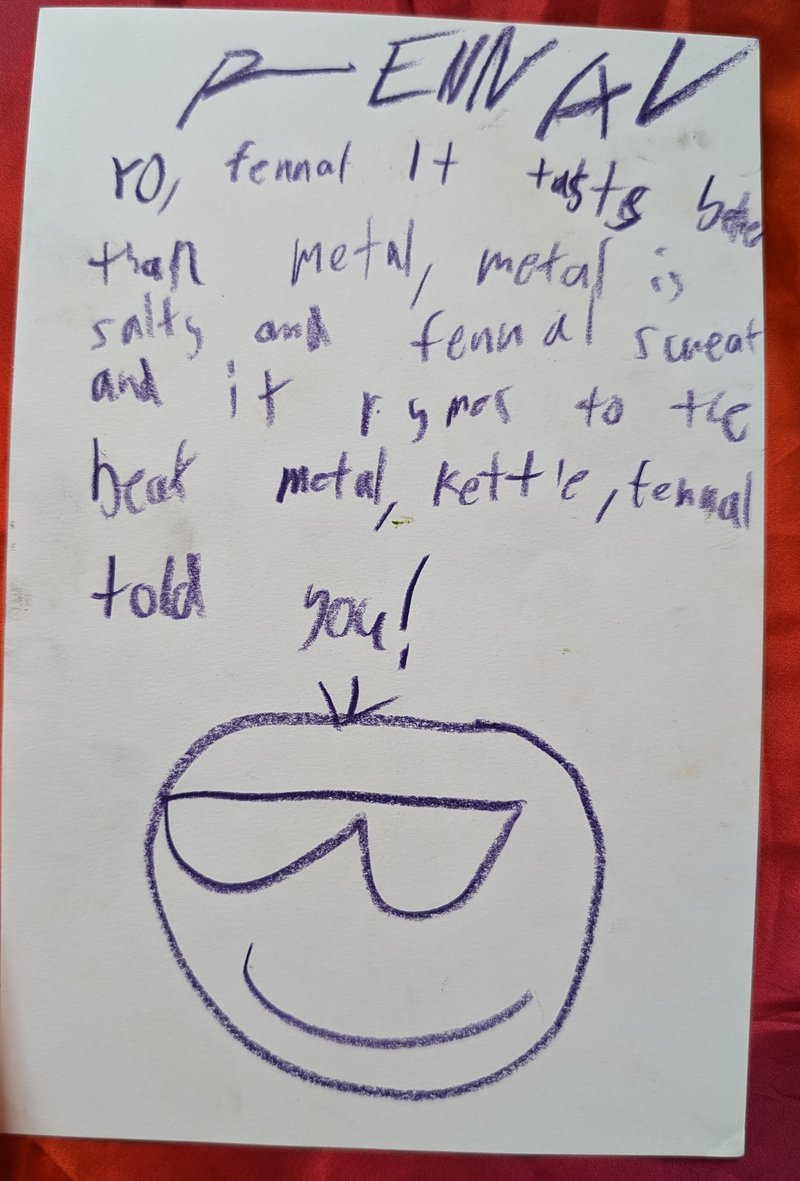 FENNAL
YO, fennal It tasts better
than metal, metal is
salty and fennal sweat
and it rymes to the
beat metal, kettle, fennal
told you!